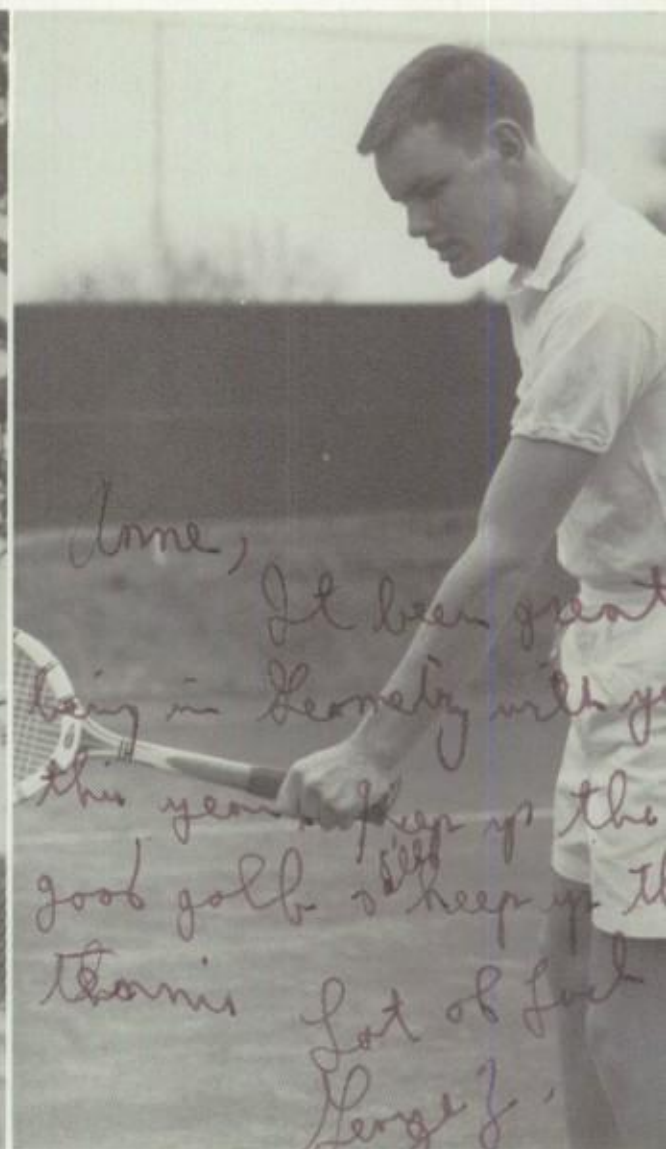 Anne,
It been great
being in Geometry with
this year. Keep up the
good golf & I'll keep up
tennis
Lot of Luck
George Z.